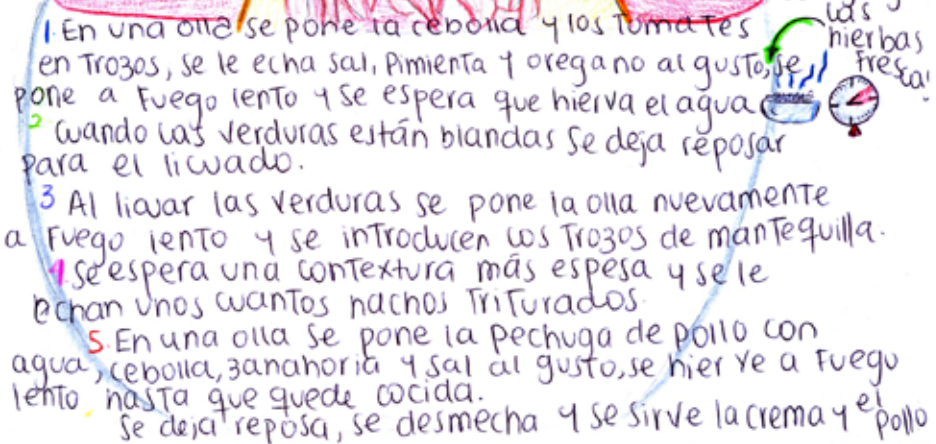 1. En una olla se pone la cebolla y los Tomates
en Trozos, se le echa sal, Pimienta y oregano al gusto, se
pone a Fuego lento y se espera que hierva el agua
2 Cuando las verduras están blandas se deja reposar
para el licuado.
3 Al licuar las verduras se pone la olla nuevamente
a Fuego lento y se introducen los Trozos de mantequilla.
4. Se espera una contextura más espesa y se le
echan unos cuantos nachos Triturados.
5. En una olla se pone la pechuga de pollo con
agua, cebolla, zanahoria y sal al gusto, se hierve a Fuego
lento hasta que quede cocida.
Se deja reposa, se desmecha y se sirve la crema y el pollo
las
hierbas